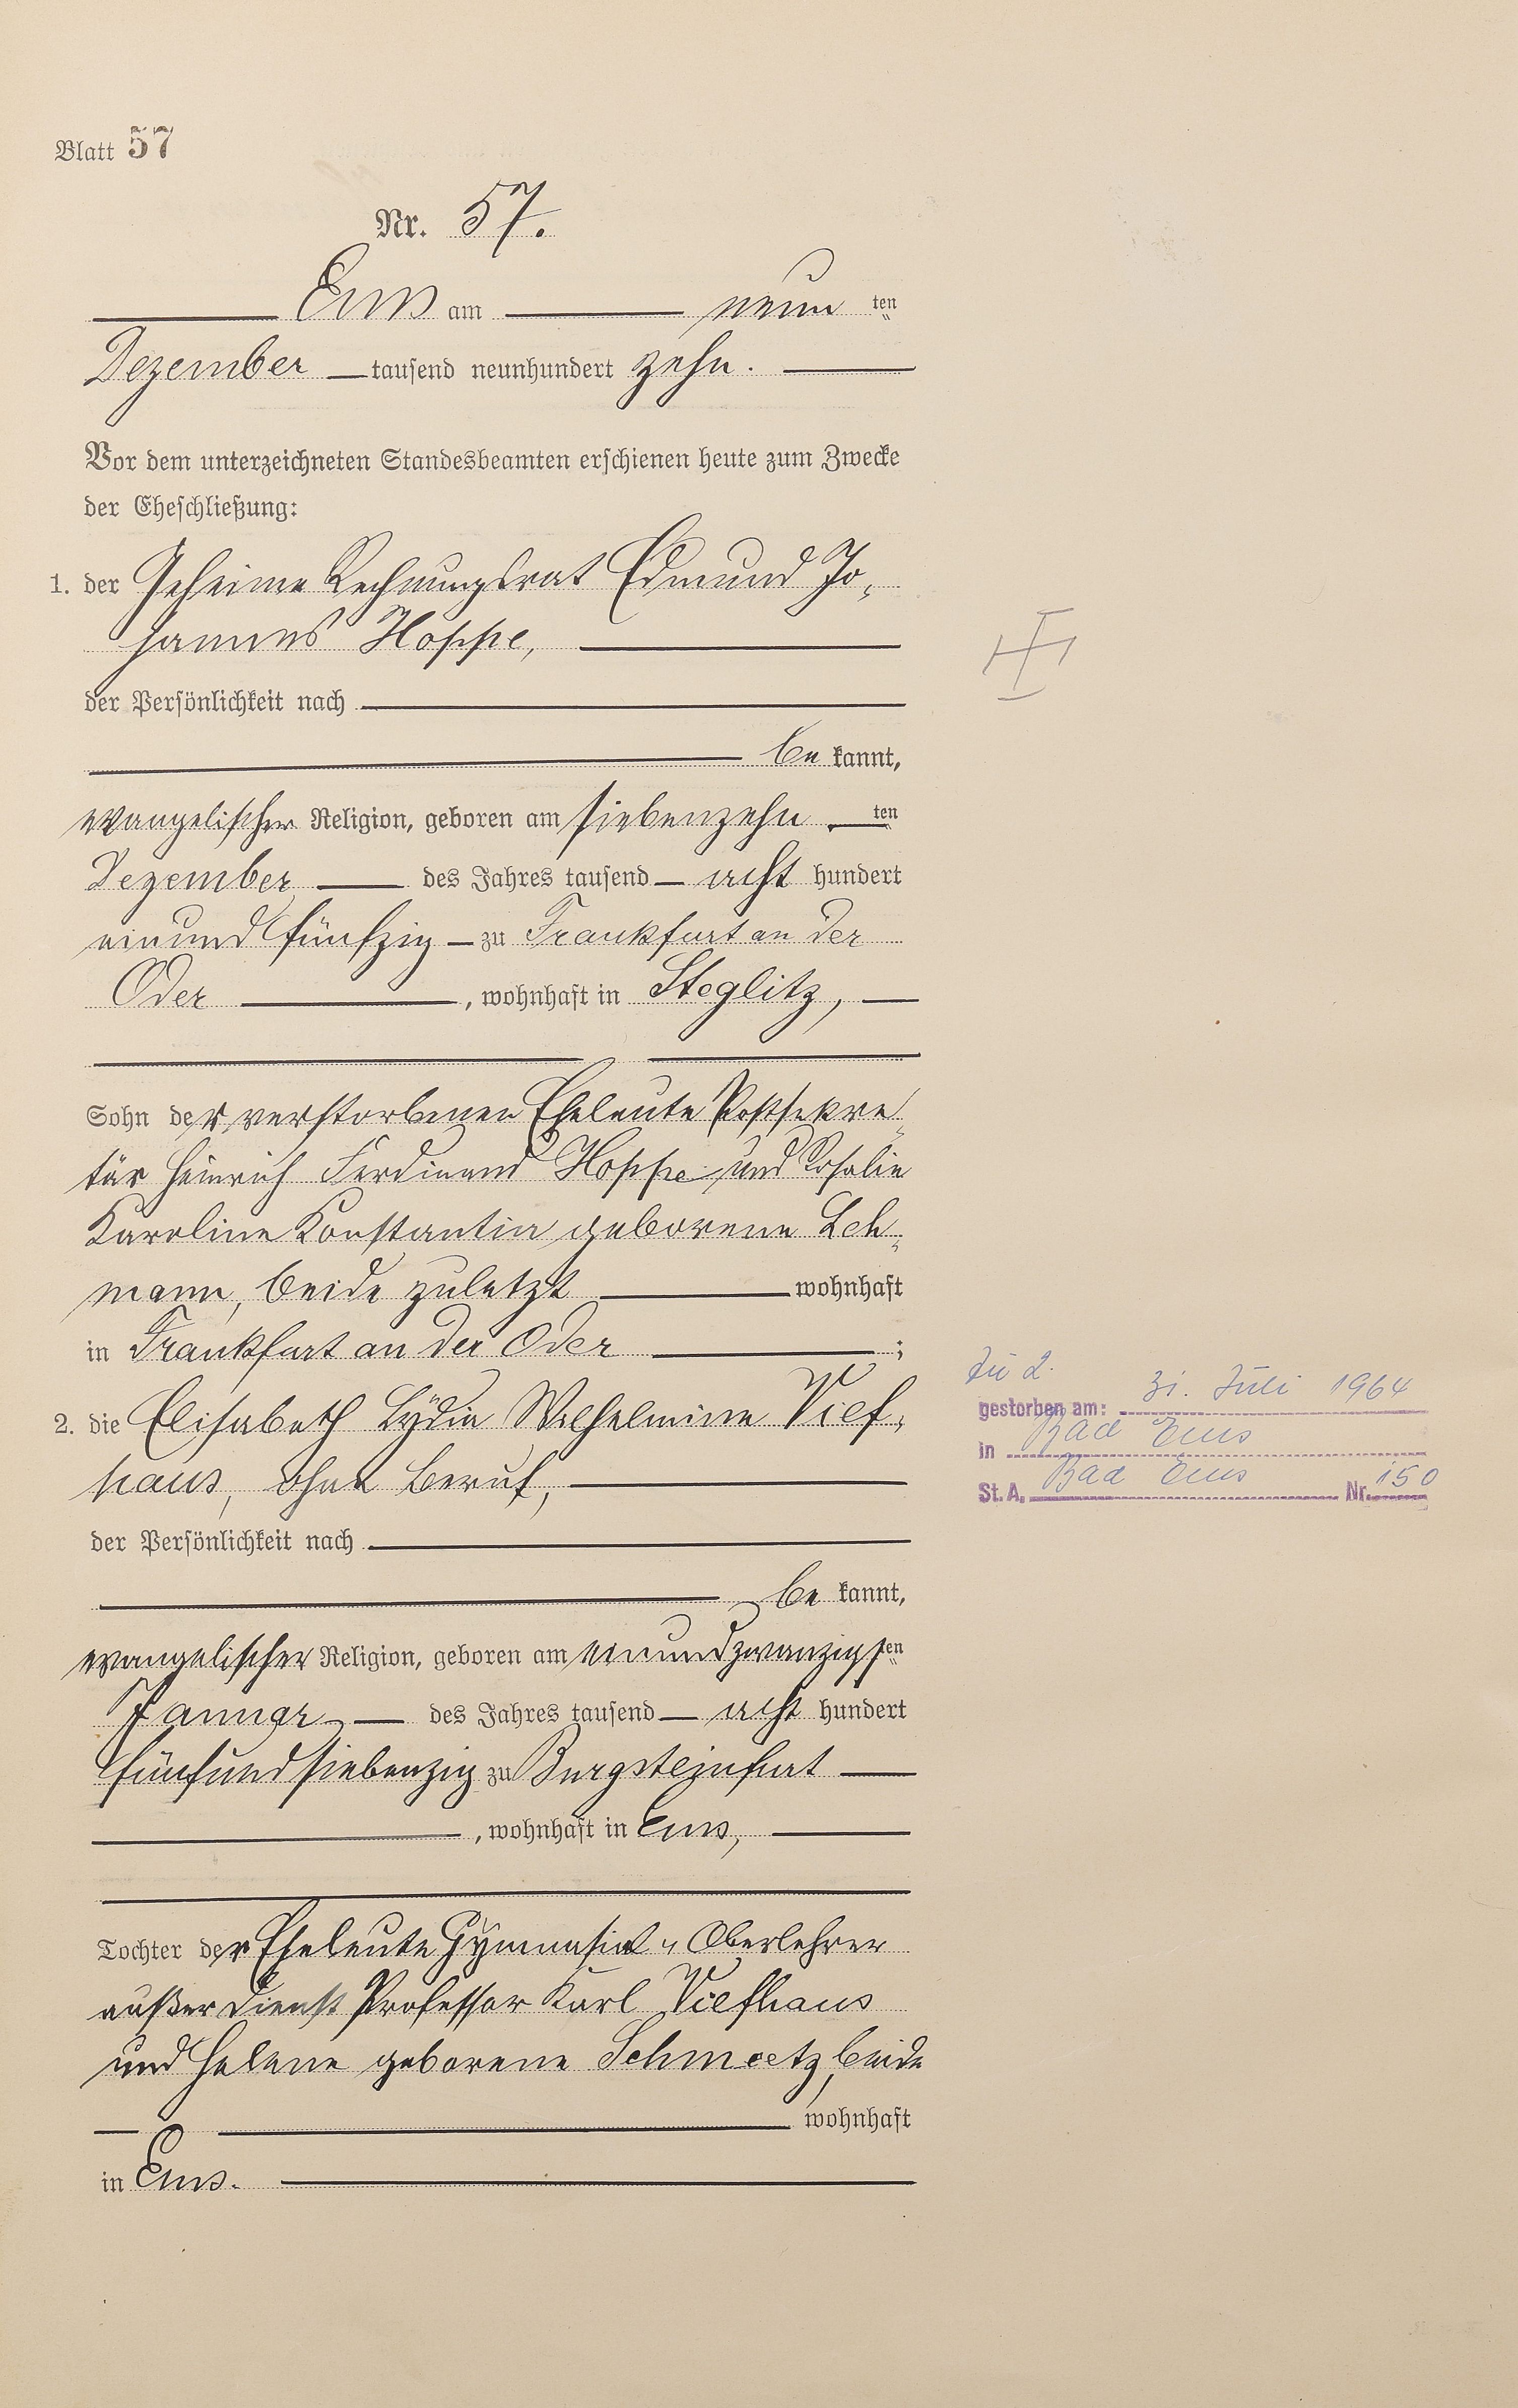 Blatt 57
Nr. 57.
Ems am neun ten
Dezember tausend neunhundert zehn.
Vor dem unterzeichneten Standesbeamten erschienen heute zum Zwecke
der Eheschließung:
1. der Geheime Rechnungsrat Edmund Jo-
hannes Hoppe,
der Persönlichkeit nach
be kannt,
evangelischer Religion, geboren am siebenzehn ten
Dezember des Jahres tausend acht hundert
einund fünfzig zu Frankfurt an der
Oder, wohnhaft in Steglitz,
Sohn der verstorbenen Eheleute Postsekre-
tär Heinrich Ferdinand Hoppe und Rosalie
Karoline Konstantia geborene Leh-
mann, beide zuletzt wohnhaft
in Frankfurt an der Oder;
2. die Elisabeth Lydia Wilhelmine Vief-
haus, ohne Beruf,
der Persönlichkeit nach
be kannt,
evangelischer Religion, geboren am einundzwanzigsten
Januar des Jahres tausend acht hundert
fünfundsiebenzig zu Burgsteinfurt
, wohnhaft in Ems,
Tochter der Eheleute Gymnasial-Oberlehrer
außer Dienst Professor Karl Viefhaus
und Helene geborene Schmeetz, beide
wohnhaft
in Ems.
zu 2.
gestorben am: 31. Juli 1964
in Bad Ems
St. A. Bad Ems Nr. 150